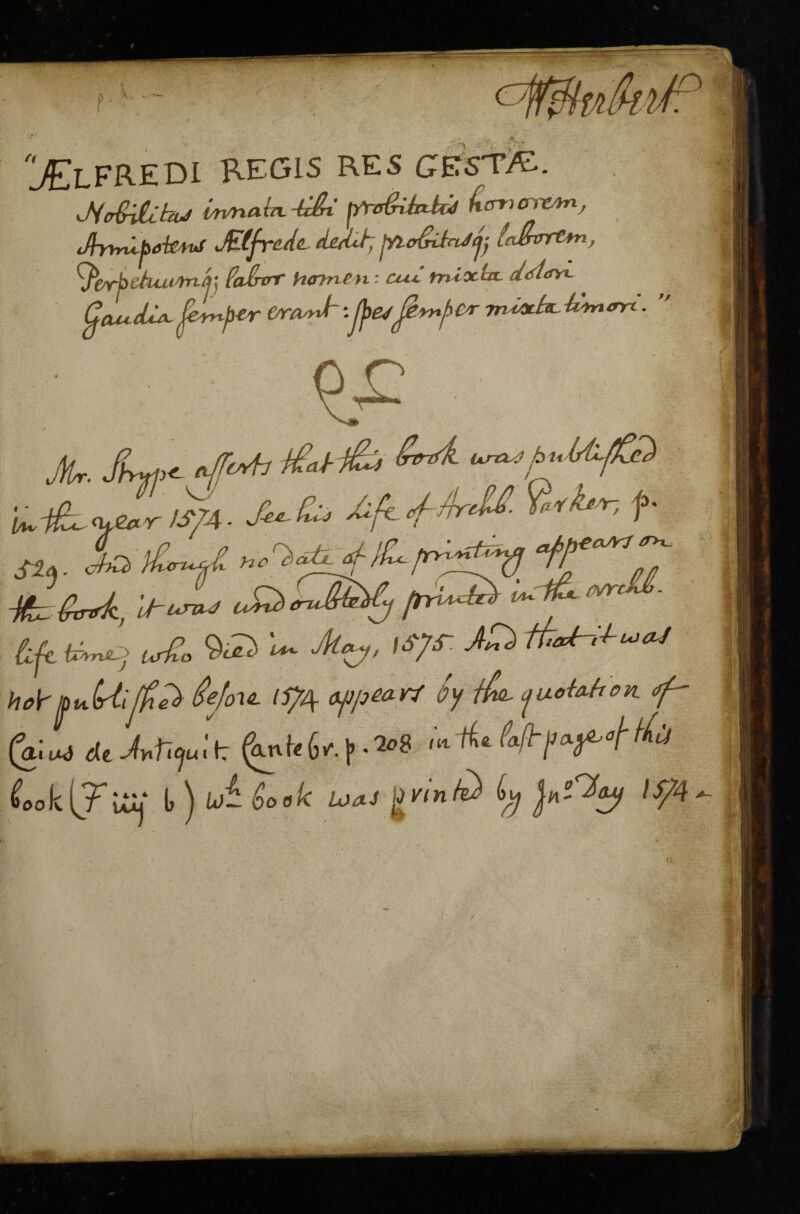 WHerbert.
"ÆLFREDI REGIS RES GESTÆ.
Nobilitas innata tibi probitatis honorem,
Armipotens Ælfrede dedit, probitasq; laborem,
Perpetuumq; labor nomen: cui mixta dolori
Gaudia semper erant: spes semper mixta timori."
Mr. Strype asserts that this book was publisshed
in the year 1574. See his Life of Archb. Parker, p.
529. And though no date of the printing appears on
the book, it was undoubtedly printed in the archb.
life time, who died in May, 1575. And that it was
not published before 1574 appears by the quotation of
Caius de Antiquit: Cantebr. p. 208 in the last page of this
book (F iiij b) wch. book was printed by Jno. Day 1574